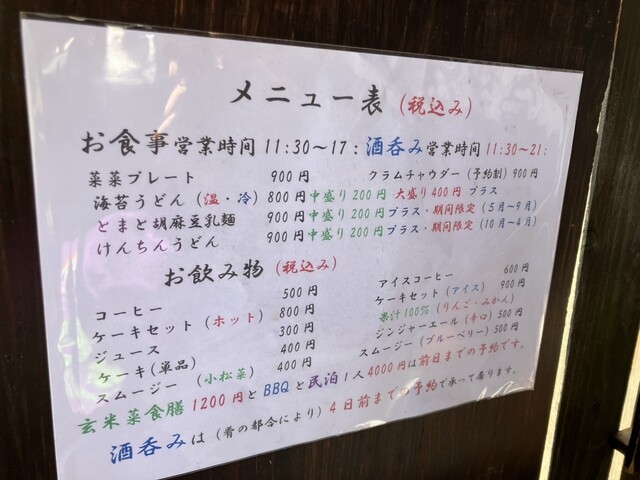 メニュー表 (税込み)
お食事営業時間 11:30〜17: 酒呑み営業時間 11:30〜21:
菜菜プレート 900円 クラムチャウダー (予約制) 900円
海苔うどん (温・冷) 800円 中盛り200円 大盛り400円 プラス
とまと胡麻豆乳麺 900円 中盛り200円 プラス・期間限定 (5月〜9月)
けんちんうどん 900円 中盛り200円 プラス・期間限定 (10月〜4月)
お飲み物 (税込み)
コーヒー 500円 アイスコーヒー 600円
ケーキセット (ホット) 800円 ケーキセット (アイス) 900円
ジュース 300円 果汁100% (りんご・みかん)
ケーキ(単品) 400円 ジンジャーエール (辛口) 500円
スムージー (小松菜) 400円 スムージー (ブルーベリー) 500円
玄米菜食膳 1200円と BBQと民泊1人4000円は前日までの予約です。
酒呑みは (肴の都合により) 4日前までの予約で承って居ります。